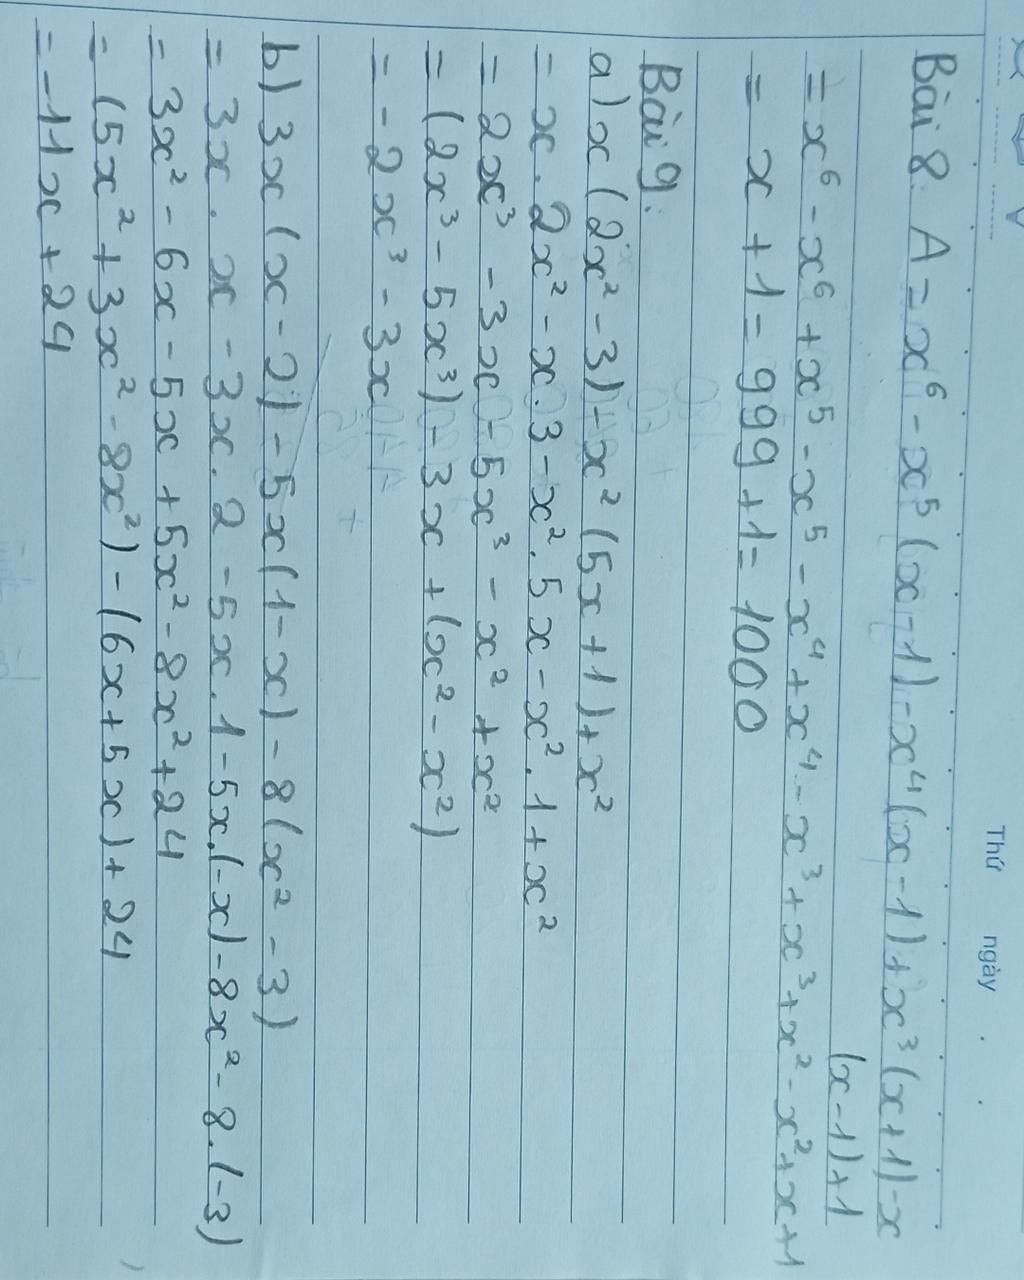 Thứ ngày
Bài 8. A = x⁶ - x⁵ (x - 1) - x⁴ (x - 1) + x³ (x + 1) - x
(x - 1) + 1
= x⁶ - x⁶ + x⁵ - x⁵ - x⁴ + x⁴ - x³ + x³ + x² - x² + x + 1
= x + 1 = 999 + 1 = 1000
Bài 9.
a) x (2x² - 3) - x² (5x + 1) + x²
= x . 2x² - x . 3 - x² . 5x - x² . 1 + x²
= 2x³ - 3x - 5x³ - x² + x²
= (2x³ - 5x³) - 3x + (x² - x²)
= - 2x³ - 3x
b) 3x (x - 2) - 5x (1 - x) - 8 (x² - 3)
= 3x . x - 3x . 2 - 5x . 1 - 5x . (- x) - 8x² - 8 . (-3)
= 3x² - 6x - 5x + 5x² - 8x² + 24
= (5x² + 3x² - 8x²) - (6x + 5x) + 24
= - 11x + 24